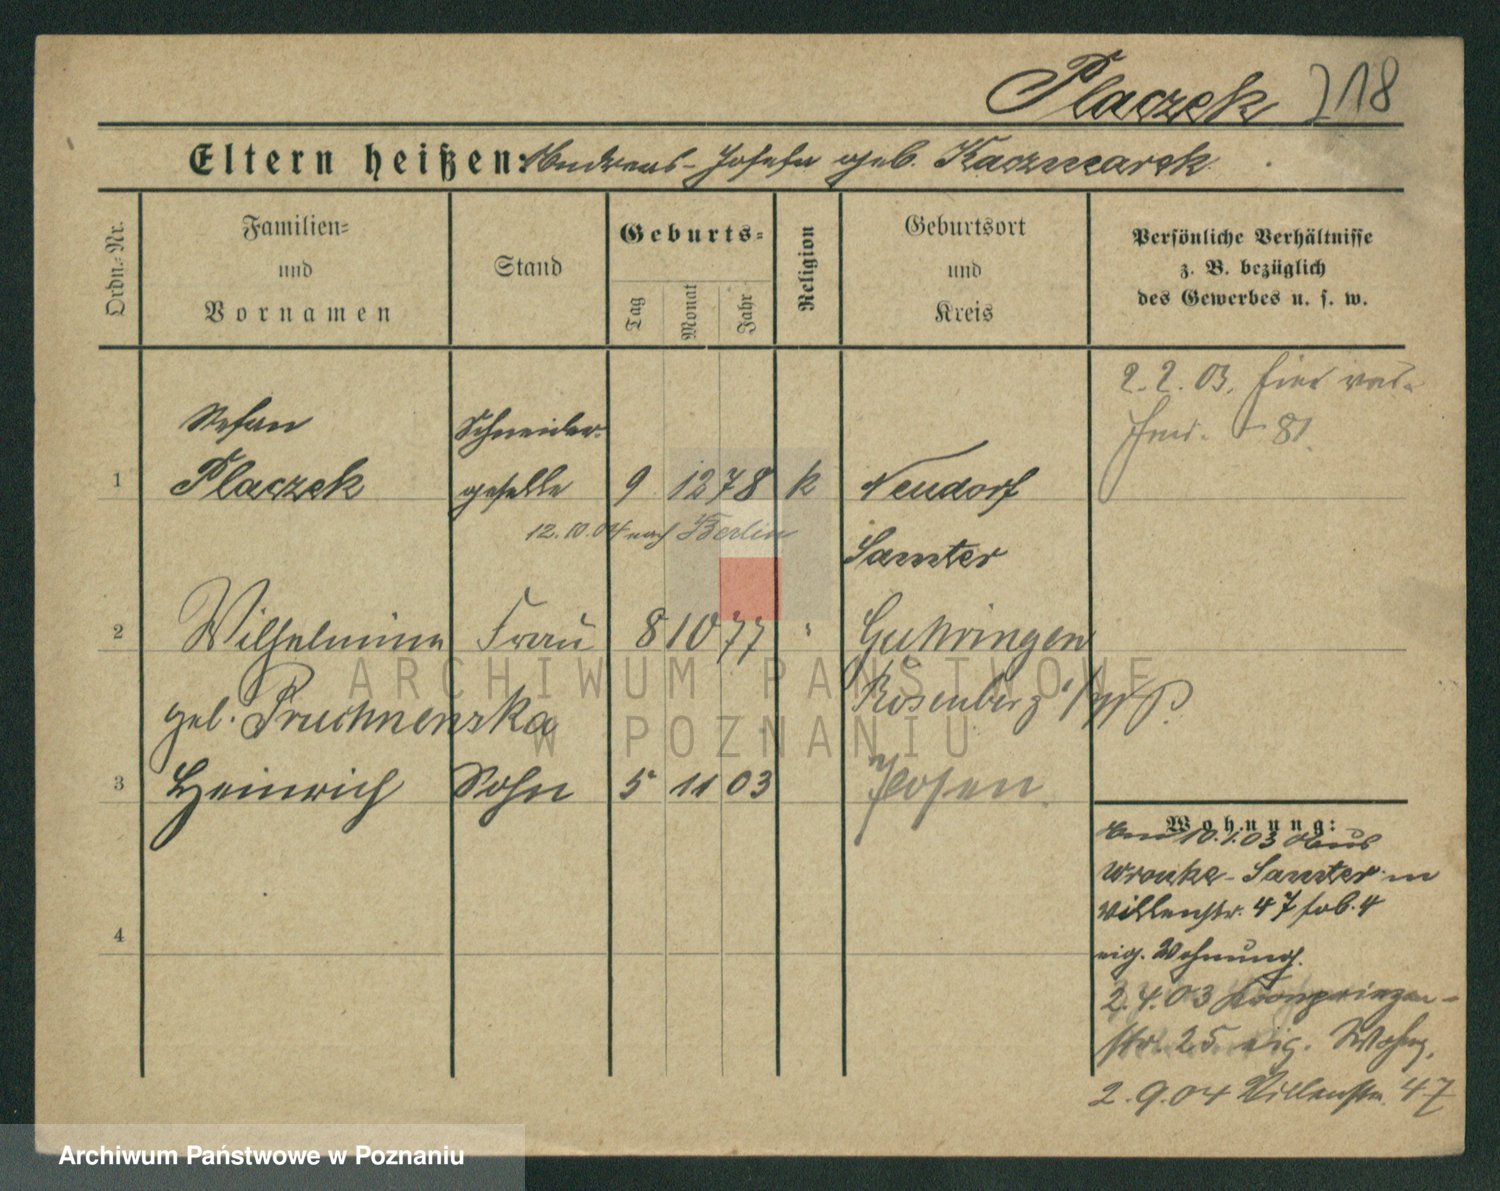 Placzek 718
Eltern heißen: Andreas - Josefa geb. Kaczmarek
Ordn.-Nr.
Familien-
und
Vornamen
Stand
Geburts-
Tag
Monat
Jahr
Religion
Geburtsort
und
Kreis
Persönliche Verhältnisse
z. B. bezüglich
des Gewerbes u. s. w.
2.2.03. hier
81.
1
Stefan
Placzek
Schneider-
geselle
9 12 78 k
Neudorf
Samter
12.10.04 nach Berlin
2 Wilhelmine Frau 8 10 77 " Guhringen
geb. Pruchnenska
Rosenberg W/P.
3 Heinrich Sohn 5 11 03 Posen
4
Wohnung:
10.1.03 aus
Wronke - Samter in
Villenstr. 47
eig. Wohnung.
2.4.03 Kronprinzen-
str. 25 eig. Wohng.
2.9.04 Villenstr. 47
ARCHIWUM PAŃSTWOWE
W POZNANIU
Archiwum Państwowe w Poznaniu